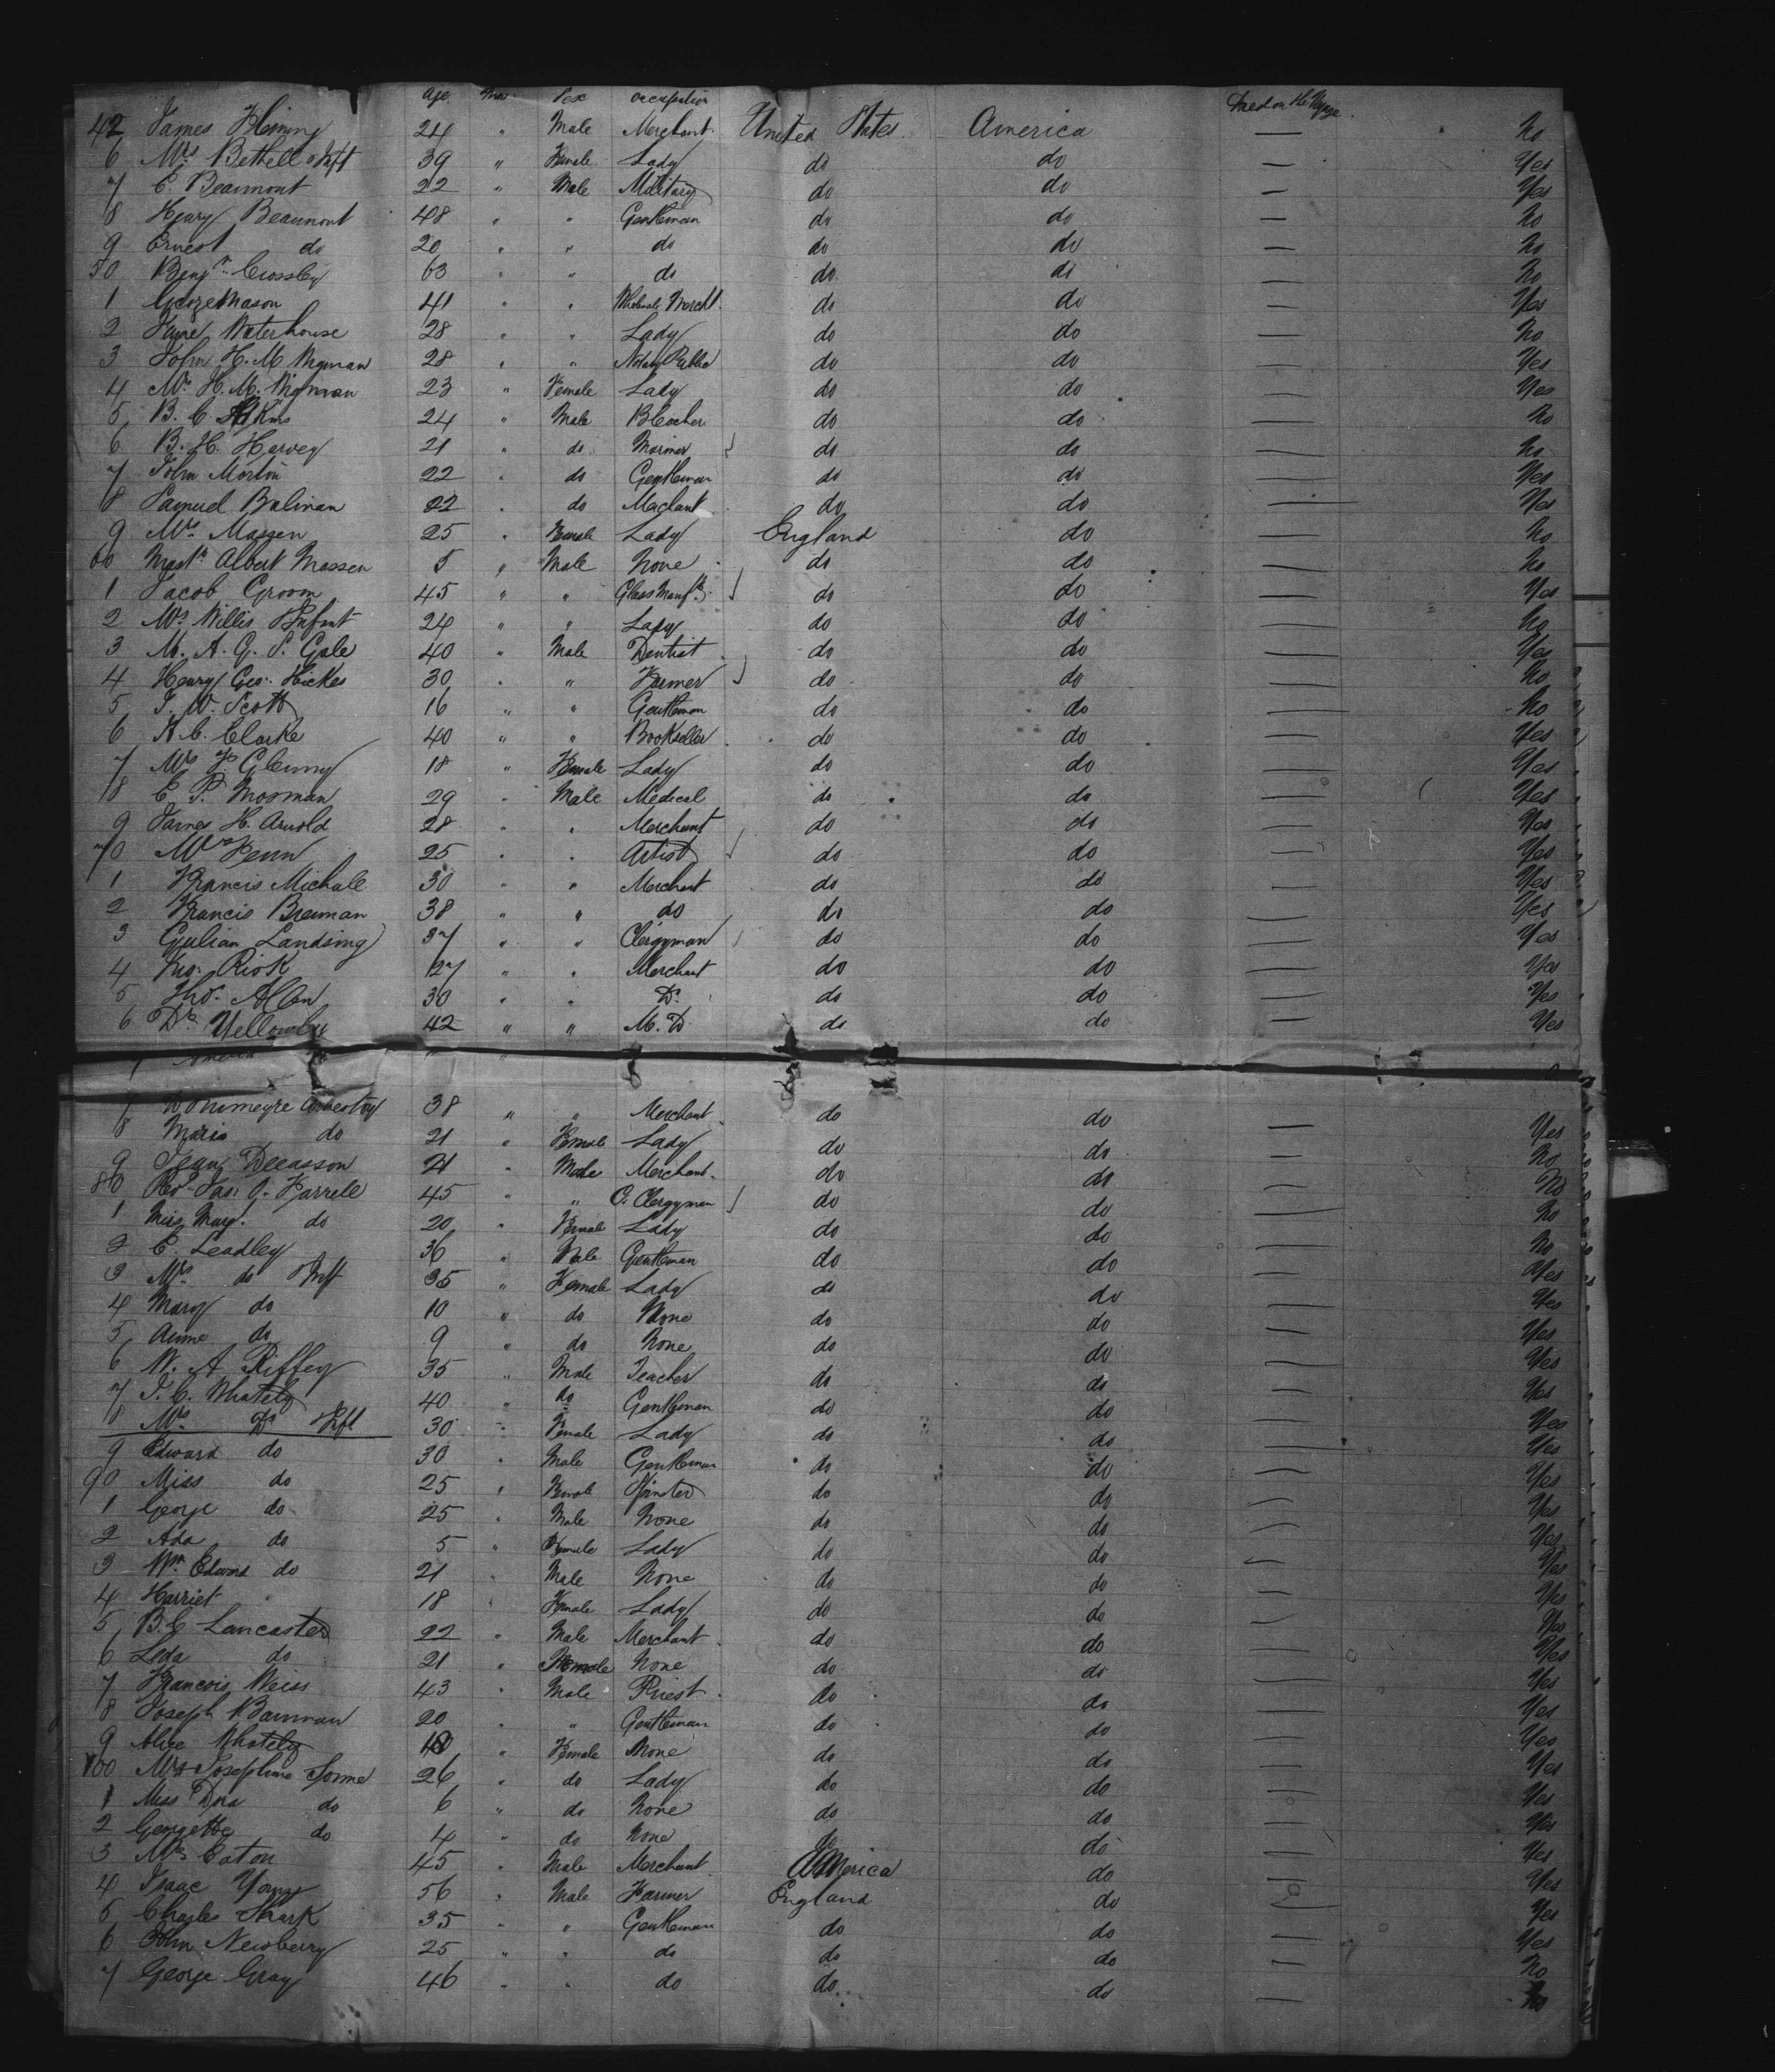 Age Sex Occupation Died on the Voyage.
42 James Fleming 24 " Male Merchant. United States America — No
6 Mrs Bethell & Inft 39 " Female Lady do do — Yes
7 E. Beaumont 22 " Male Military do do — Yes
8 Henry Beaumont 48 " " Gentleman do do — No
9 Ernest do 20 " " do do do — No
50 Benjn. Crossley 63 " " do do do — No
1 George Mason 41 " " Wholesale Mercht. do do — Yes
2 Jane Waterhouse 28 " " Lady do do — No
3 John H. M Wigman 28 " " Notary Public do do — Yes
4 Mrs H. M. Wigman 23 " Female Lady do do — Yes
5 B. C. 24 " Male Bleacher do do — No
6 B. H. Harvey 21 " do Mariner do do — No
7 John Morton 22 " do Gentleman do do — Yes
8 Samuel 22 " do do do — Yes
9 Mrs Massen 25 " Female Lady England do — No
60 Mastr Albert Massen 5 " Male None do do — No
1 Jacob Groom 45 " " Glass Manfr. do do — Yes
2 Mrs Willis & Infant 24 " " Lady do do — No
3 M. A. G. S. Gale 40 " Male Dentist do do — Yes
4 Henry Geo. Hickes 30 " " Farmer do do — No
5 J. W. Scott 16 " " Gentleman do do — No
6 A. C. Clarke 40 " " Bookseller do do — Yes
7 Mrs F. Glenny 18 " Female Lady do do — Yes
8 E. P. Mosman 29 " Male Medical do do — Yes
9 James H. Arnold 28 " " Merchant do do — Yes
70 Mrs Fenn 25 " " Artist do do — Yes
1 Francis Michale 30 " " Merchant do do — Yes
2 Francis Brennan 38 " " do do do — Yes
3 Gulian Landsing 37 " " Clergyman do do — Yes
4 Risk 27 " " Merchant do do — Yes
5 Thos. Allen 30 " " Do. do do — Yes
6 Dr. Yellowby 42 " " M. D do do — Yes
7 38 " " Merchant. do do — Yes
8 Maria do 21 " Female Lady do do — No
9 Jean Decasson 21 " Male Merchant. do do — No
80 Revd. Jas. O. Farrele 45 " " C. Clergyman do do — No
1 Miss Mary. do 20 " Female Lady do do — No
2 E. Leadley 36 " Male Gentleman do do — Yes
3 Mrs do & Inft 35 " Female Lady do do — Yes
4 Mary do 10 " do None do do — Yes
5 Anne do 9 " do None do do — Yes
6 W. A Riffey 35 " Male Teacher do do — Yes
7 J. C. Whately 40 " do Gentleman do do — Yes
8 Mrs Do & Inft 30 " Female Lady do do — Yes
9 Edward do 30 " Male Gentleman do do — Yes
90 Miss do 25 " Female Spinster do do — Yes
1 George do 25 " Male None do do — Yes
2 Ada do 5 " Female Lady do do — Yes
3 Wm. Edward do 21 " Male None do do — Yes
4 Harriet 18 " Female Lady do do — Yes
5 B. C Lancaster 22 " Male Merchant. do do — Yes
6 Leda do 21 " Female None do do — Yes
7 Francois Weiss 43 " Male Priest. do do — Yes
8 Joseph Bamman 20 " " Gentleman do do — Yes
9 Alice Whately 10 " Female None do do — Yes
100 Mrs Josephine Sonne 26 " do Lady do do — Yes
1 Miss Dora do 6 " do None do do — Yes
2 Georgette do 4 " do None do do — Yes
3 Mrs Caton 45 " Male Merchant America do — Yes
4 Isaac Young 56 " Male Farmer England do — Yes
5 Charles Shark 35 " " Gentleman do do — Yes
6 John Newberry 25 " " do do do — No
7 George Gray 46 " " do do do — No